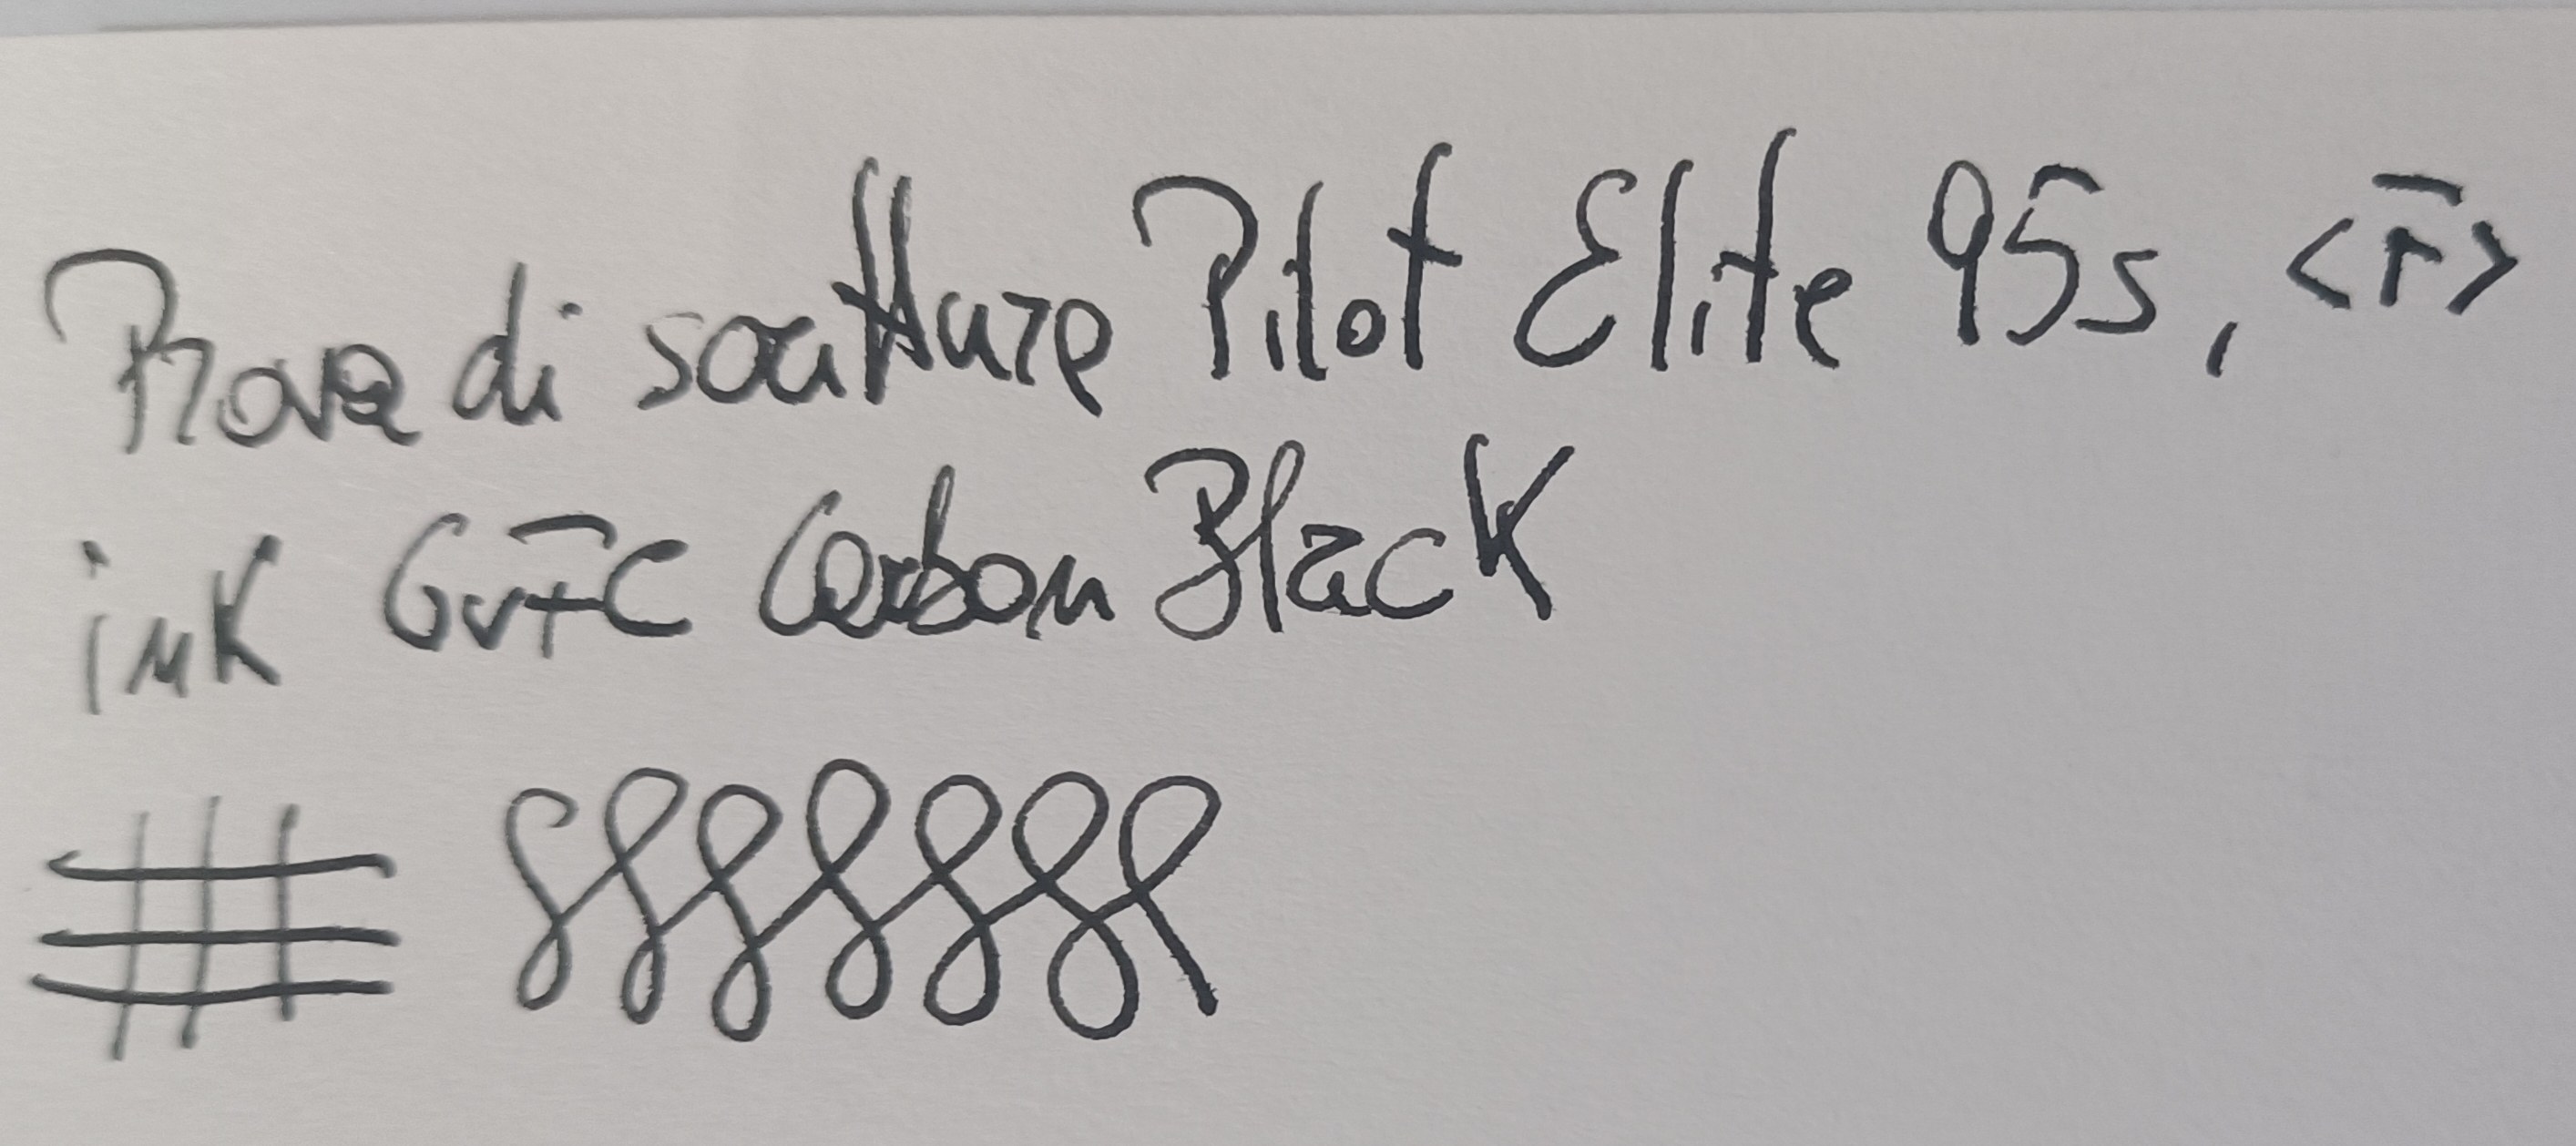 Prova di scrittura Pilot Elite 95s, <F>
ink GvFC Carbon Black